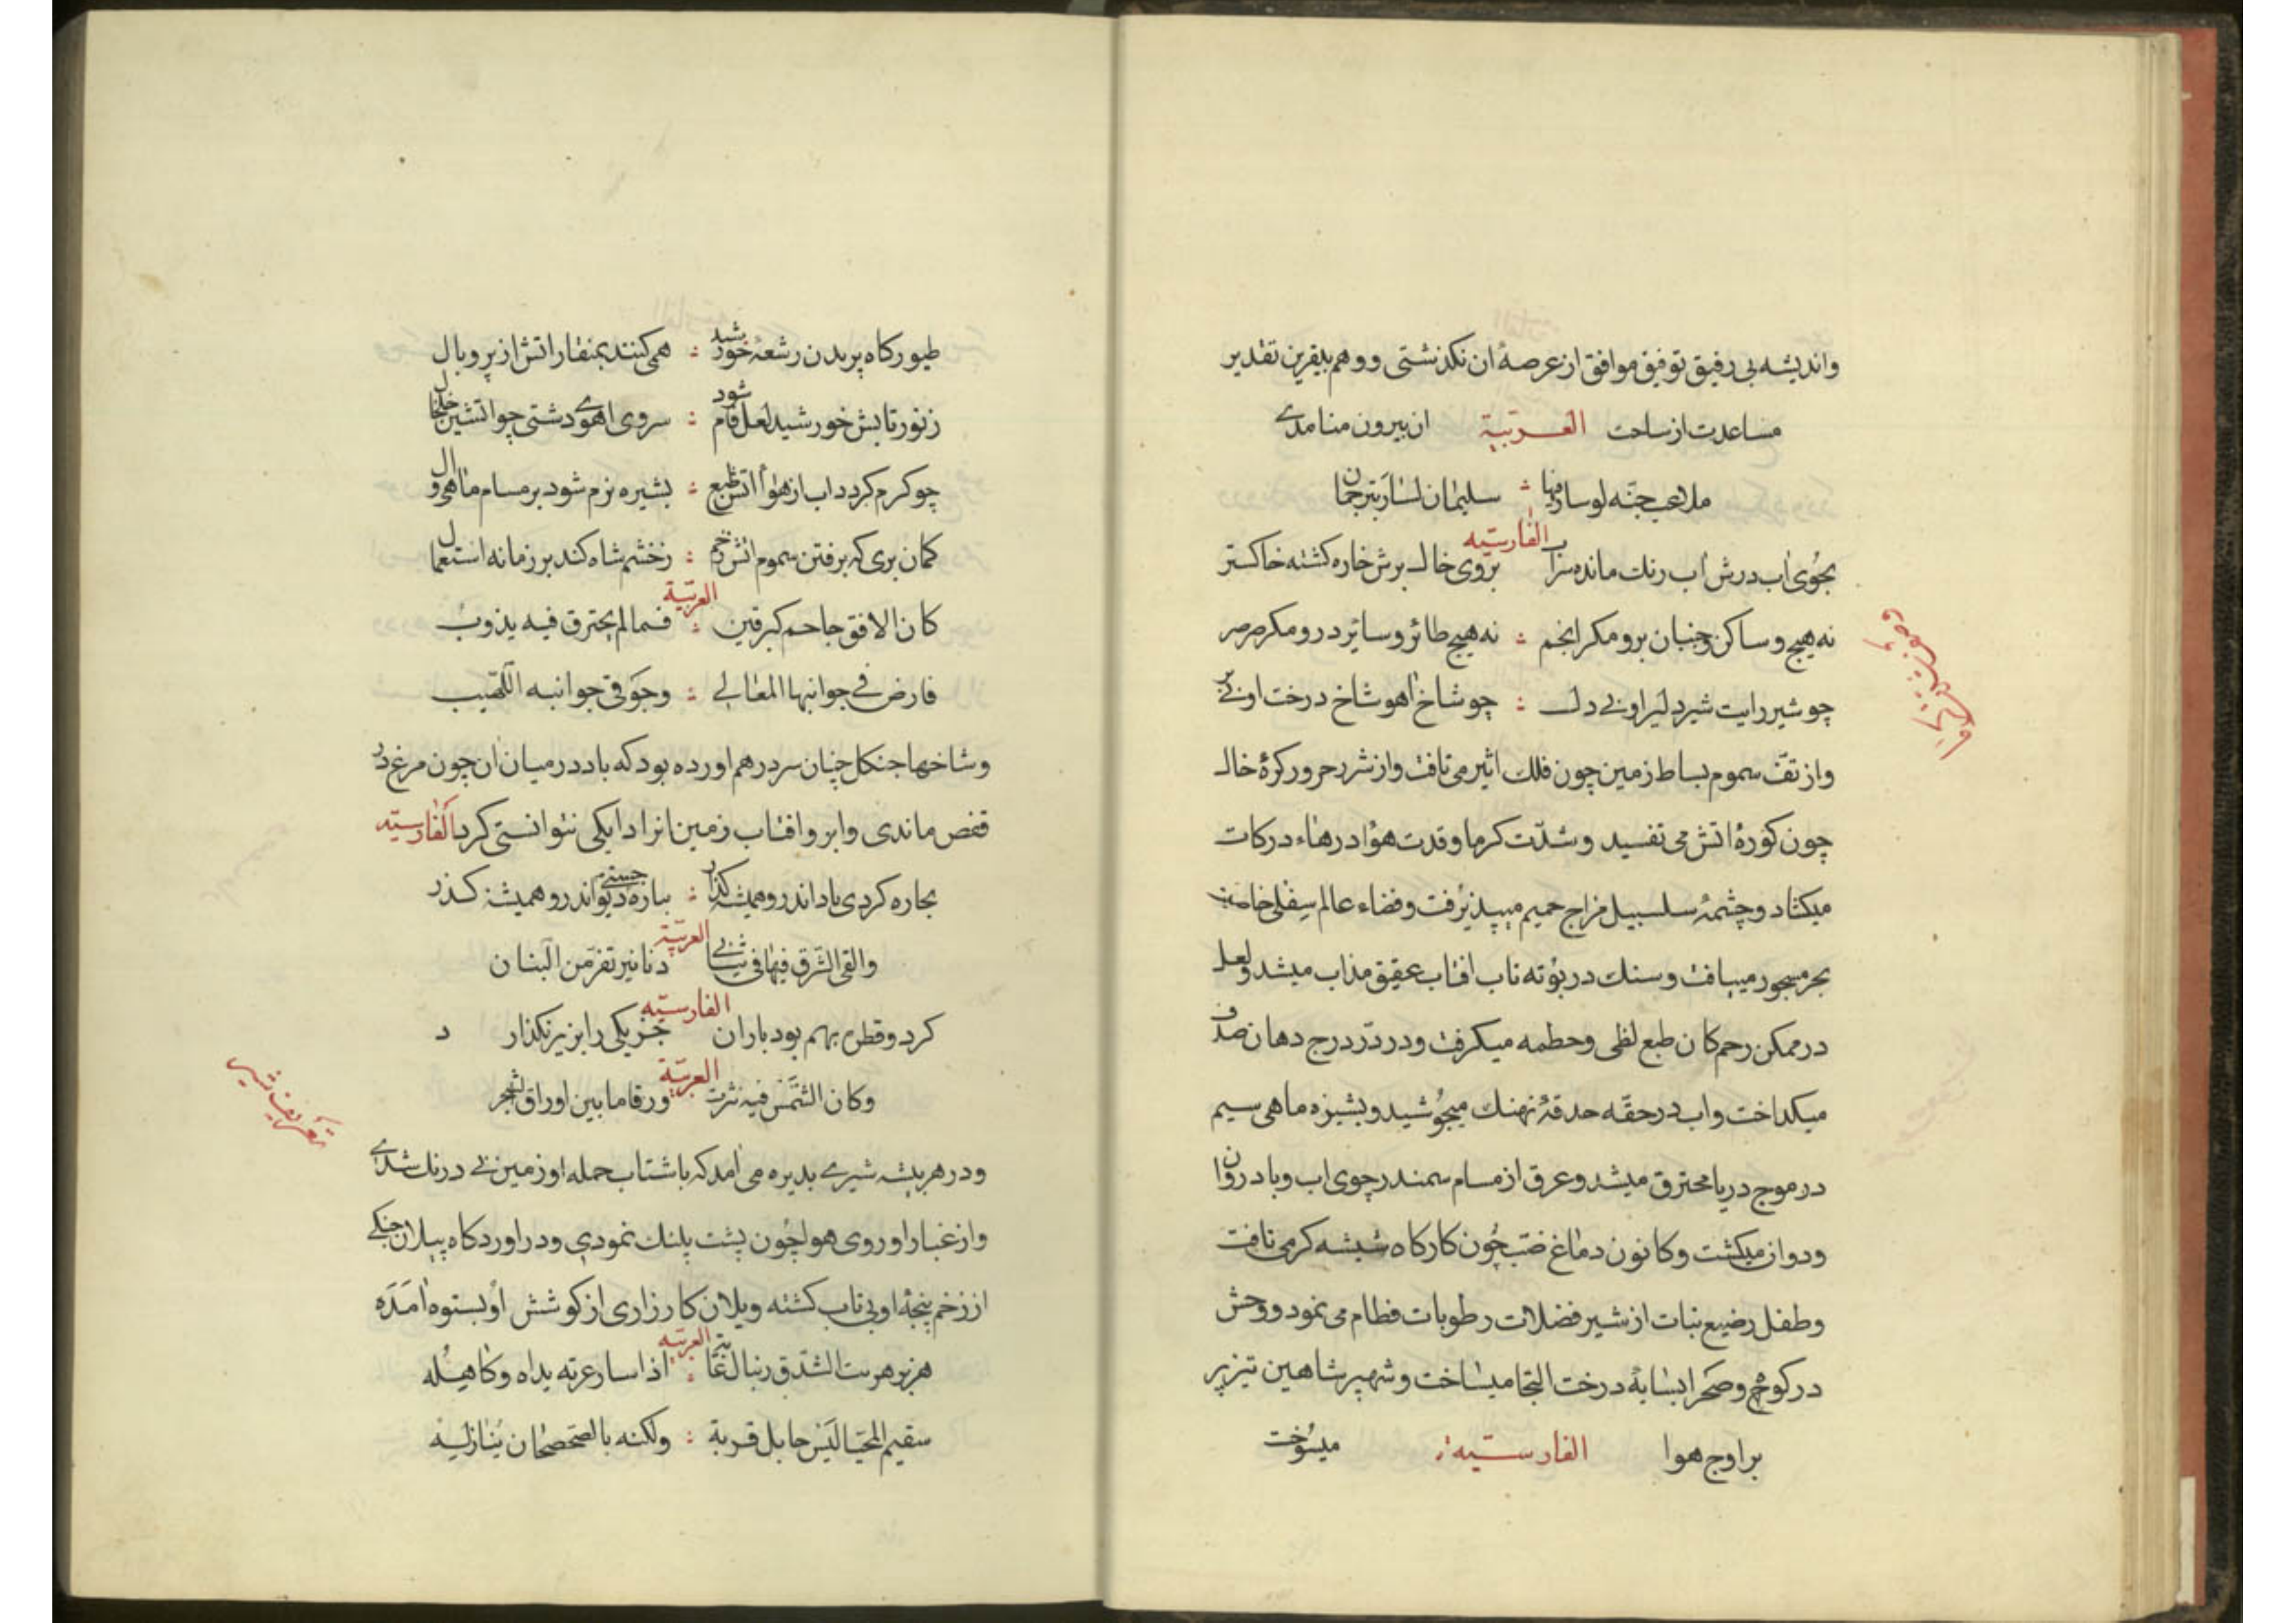 واندیشه بی رفیق توفیق موافق از عرصهٔ ان نکذشتی و وهم بیقرین تقدیر
مساعدت از ساحت العربیة ان بیرون منامدے
ملاعب جنّه لو سار فیها سلیمان لسار بترجمان
الفارسیّه
بجوی اب درش اب رنك مانده سراب بروی خاك برش خاره کشته خاکستر
نه هیچ و ساکن و جنبان برو مکر انجم نه هیچ طائر و سائر درو مکر صرصر
چو شیر رایت شیر دلیر او بی دل چو شاخ اهو شاخ درخت او بی بر
واز تفّ سموم بساط زمین چون فلك اثیر می تافت واز شرر حرور کرهٔ خاك
چون کورهٔ اتش می تفسید و شدّت کرما وقدت هوا درهاء درکات
میکشاد و چشمهٔ سلسبیل مزاج حمیم میپذیرفت وفضاء عالم سفلی خاصیت
بحر مسجور مییافت و سنك در بوته تاب افتاب عقیق مذاب میشد و لعل
در ممکن رحم کان طبع لظی وحطمه میکرفت و در در درج دهان صدف
میکداخت واب در حقّه حدقهٔ نهنك میجوشید و بشیزه ماهی سیم
در موج دریا محترق میشد و عرق از مسام سمندر چوی اب و باد روان
ودوان میکشت وکانون دماغ ضبّ چون کارکاه شیشه کر می تافت
وطفل رضیع نبات از شیر فضلات رطوبات فطام می نمود و وحش
در کوه و صحرا بسایهٔ درخت التجا میساخت و شهپر شاهین تیز پر
بر اوج هوا الفارسیه میسوخت
طیور کاه پریدن ز شعهٔ خورشید همی کنند بمنقار اتش از پر و بال
ز نور تابش خورشید لعل فام شود سروی اهوے دشتی چو اتشین خلخال
چو کرم کردد اب از هوا اتش طبع بشیزه نرم شود بر مسام ماهی وال
کمان بری که برفتن سموم اتش زخم ز خشم شاه کند بر زمانه استعمال
العربیّة
کان الافق جاحم کبر قین فما لم یحترق فیه یذوب
فارض فی جوانبها المغالی وجوّ فی جوانبه اللهیب
وشاخها جنکل چنان سر در هم اورده بود که باد در میان ان چون مرغ در
قفص ماندی وابر و افتاب زمین انرا دایکی نتوانستی کرد الفارسیّه
بچاره کردی باد اندرو همیشه کذار بباره جستی دیو اندرو همیشه کذر
العربیّة
والقی الشرق فیها فی ثیابی دنانیر تفرّ من البنان
الفارسیّه
کرد وقطرهٔ بهم بود باران جز یکی را بزیر نکذارد
العربیّة
وکان الشمس فیه نثرت ورقا ما بین اوراق الشجر
ودر هر بیشه شیرے پدیره می امد که با شتاب حمله او زمین بی درنك شدے
واز غبار او روی هوا چون پشت پلنك نمودی ودر اورد کاه پیلان جنکی
از زخم پنجهٔ او بی تاب کشته ویلان کارزاری از کوشش او بستوه امده
العربیّه
هزبر هریت الشدق رئبال غابة اذا سار عزته یداه وکاهله
سقیم المحیّا لیس حابل قربة ولکنه بالصّحصحان ینازله
تعریف شیر